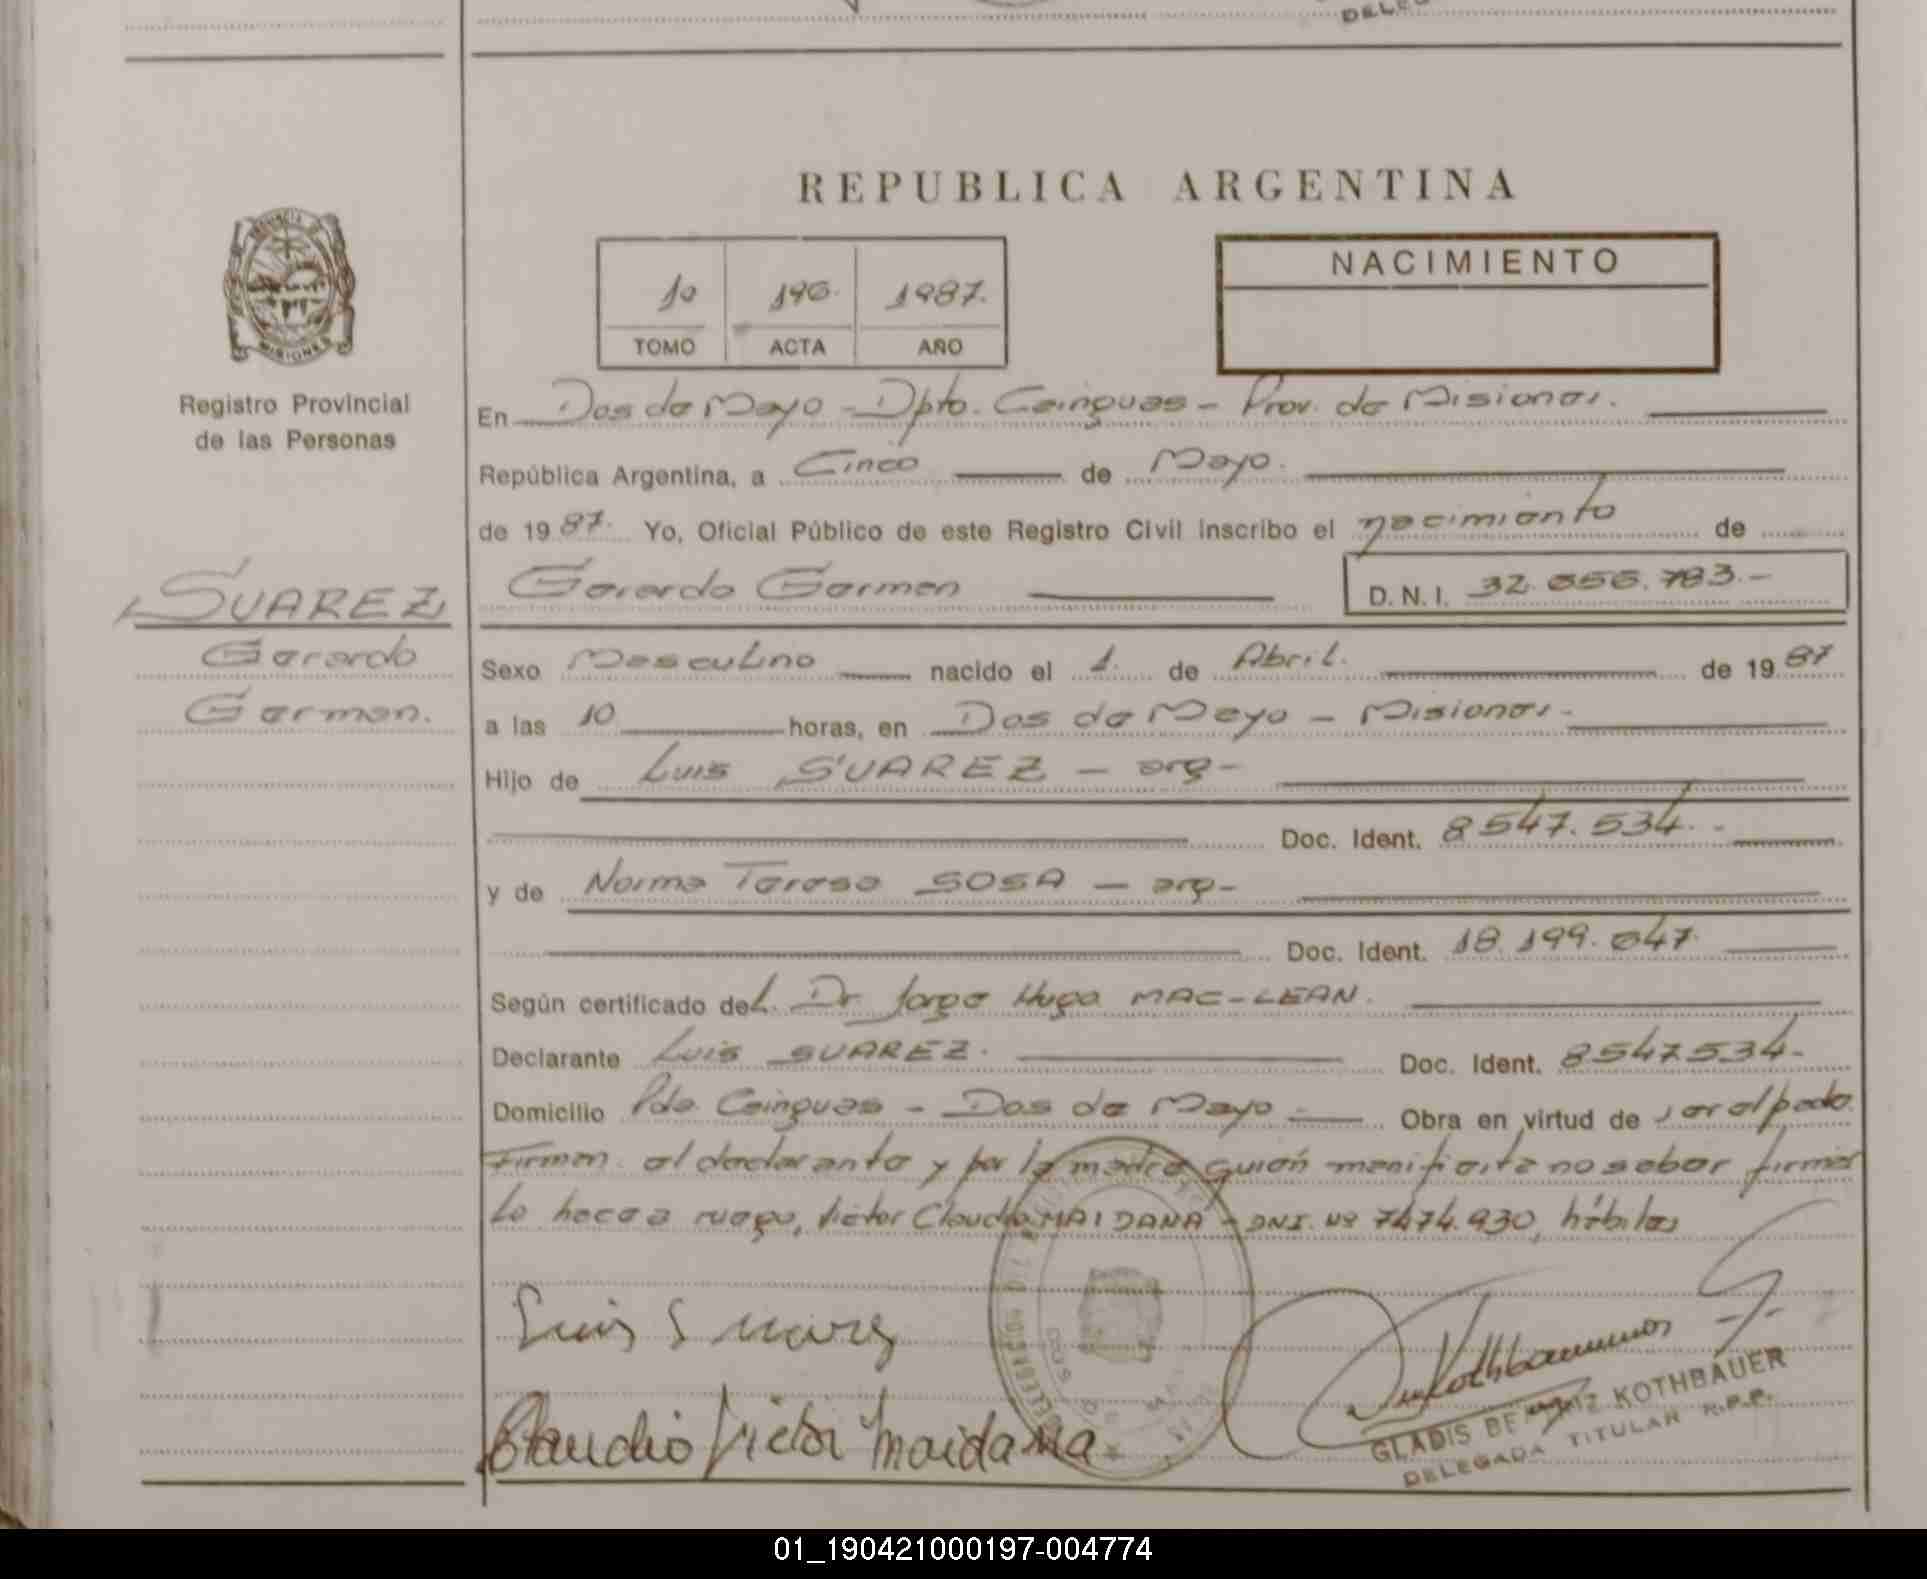 REPUBLICA ARGENTINA
PROVINCIA DE
MISIONES
Registro Provincial
de las Personas
10 196. 1987.
TOMO ACTA AÑO
NACIMIENTO
En Dos de Mayo - Dpto. Cainguas - Prov. de Misiones.
República Argentina, a Cinco de Mayo.
de 1987. Yo, Oficial Público de este Registro Civil inscribo el nacimiento de
Gerardo German D.N.I. 32.656.783.-
SUAREZ
Gerardo
German.
Sexo Masculino nacido el 1. de Abril. de 1987
a las 10 horas, en Dos de Mayo - Misiones.-
Hijo de Luis SUAREZ - arg-
Doc. Ident. 8547.534.-
y de Norma Teresa SOSA - arg-
Doc. Ident. 18.199.647.
Según certificado del. Dr. Jorge Hugo MAC-LEAN.
Declarante Luis SUAREZ. Doc. Ident. 8547534-
Domicilio Pdo. Cainguas - Dos de Mayo - Obra en virtud de ser el padre.
Firman el declarante y por la madre quién manifiesta no saber firmar
Lo hace a ruego, Victor Claudio MAIDANA - DNI. Nº 7474.930, hábiles
Luis Suarez
Claudio Victor Maidana
Kothbauer
GLADIS BEATRIZ KOTHBAUER
DELEGADA TITULAR R.P.P.
01_190421000197-004774